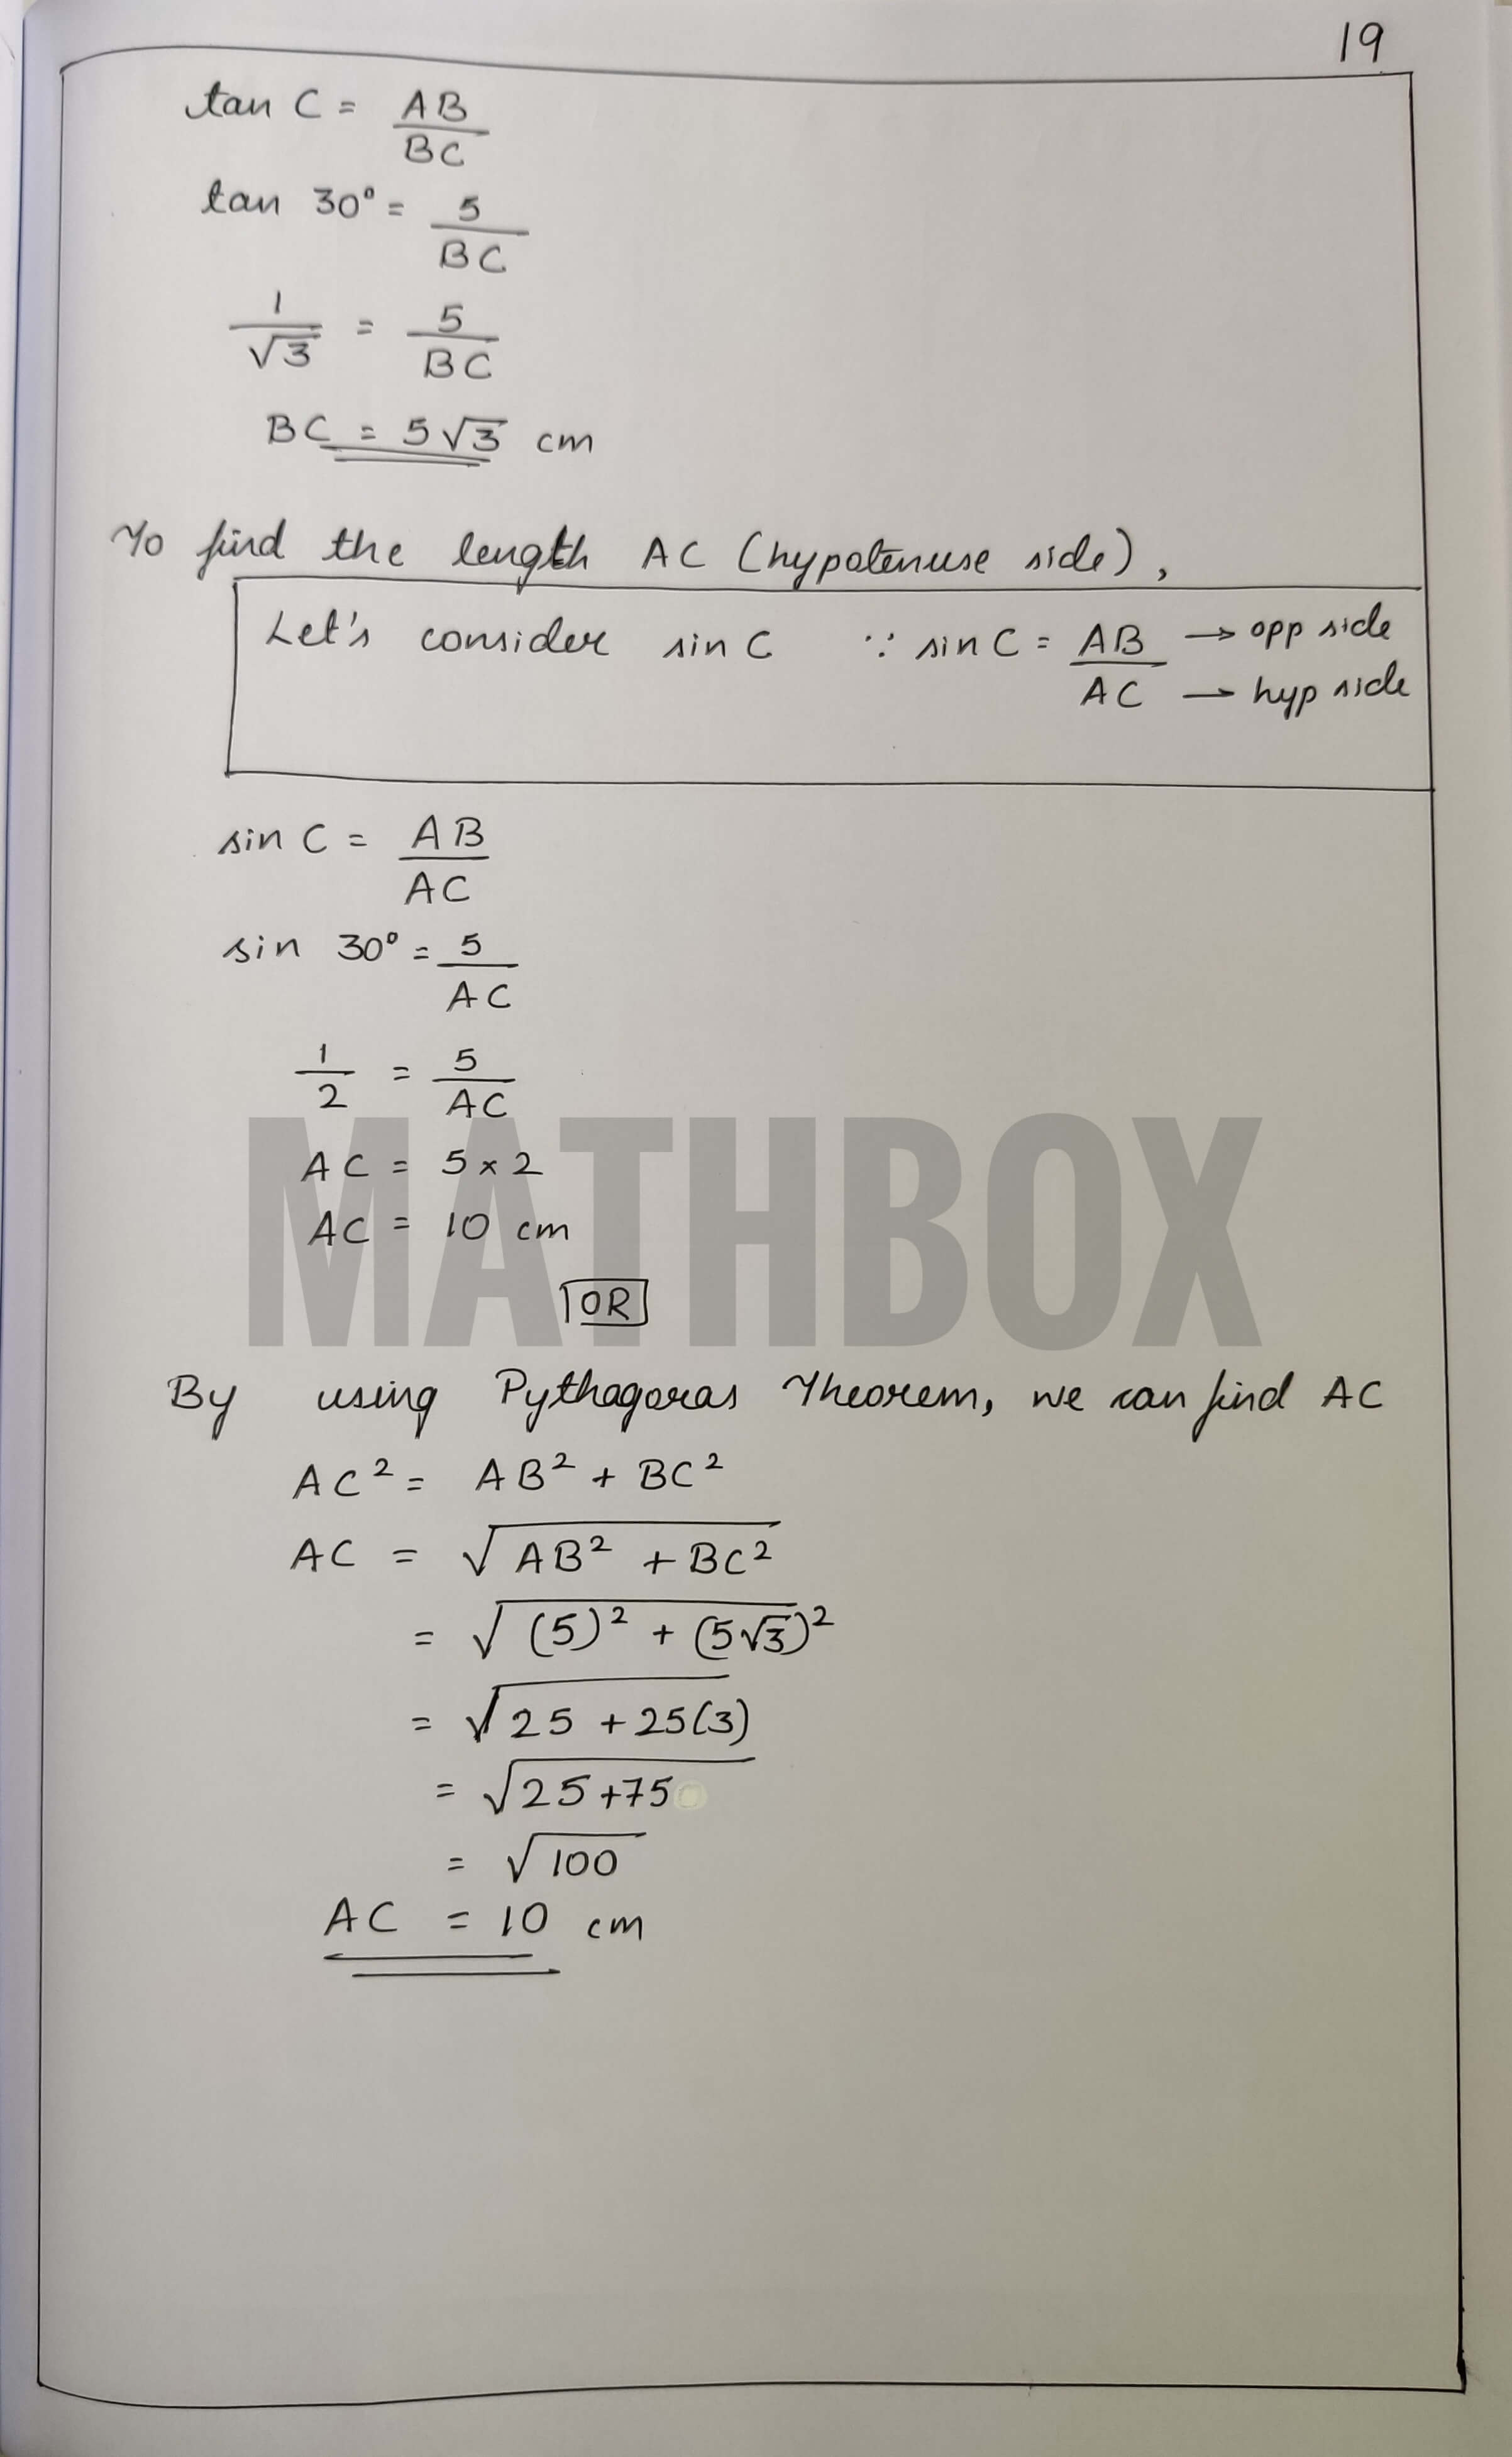 19
tan C = AB/BC
tan 30° = 5/BC
1/√3 = 5/BC
BC = 5√3 cm
To find the length AC (hypotenuse side),
Let's consider sin C ∵ sin C = AB/AC → opp side → hyp side
sin C = AB/AC
sin 30° = 5/AC
1/2 = 5/AC
AC = 5 × 2
AC = 10 cm
MATHBOX
OR
By using Pythagoras Theorem, we can find AC
AC² = AB² + BC²
AC = √(AB² + BC²)
= √((5)² + (5√3)²)
= √(25 + 25(3))
= √(25+75)
= √100
AC = 10 cm